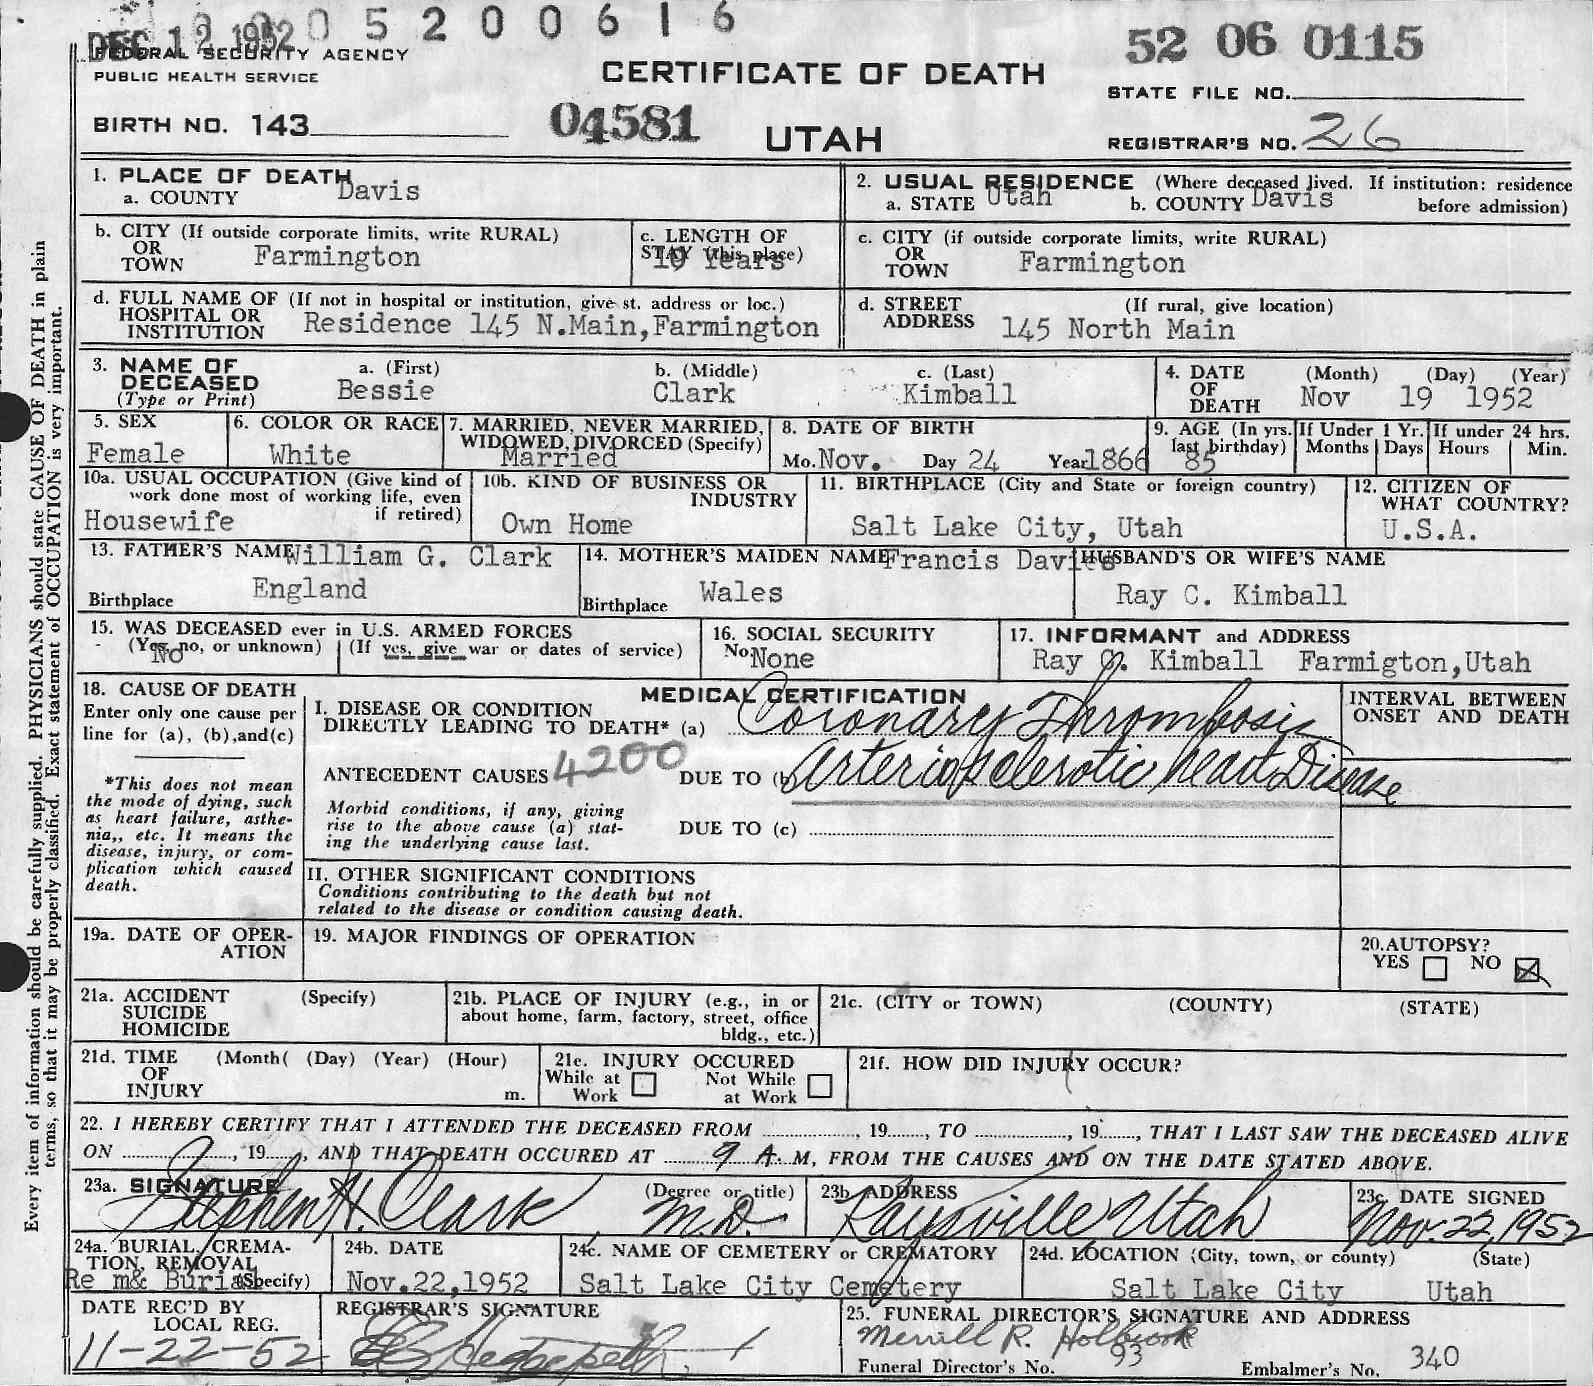 DEC 12 1952 0 5 2 0 0 6 1 6
52 06 0115
FEDERAL SECURITY AGENCY
PUBLIC HEALTH SERVICE
CERTIFICATE OF DEATH
STATE FILE NO.
BIRTH NO. 143
04581
UTAH
REGISTRAR'S NO. 26
1. PLACE OF DEATH
a. COUNTY Davis
2. USUAL RESIDENCE (Where deceased lived. If institution: residence before admission)
a. STATE Utah b. COUNTY Davis
b. CITY (If outside corporate limits, write RURAL)
OR
TOWN Farmington
c. LENGTH OF
STAY (this place)
10 Years
c. CITY (if outside corporate limits, write RURAL)
OR
TOWN Farmington
d. FULL NAME OF (If not in hospital or institution, give st. address or loc.)
HOSPITAL OR
INSTITUTION Residence 145 N.Main,Farmington
d. STREET (If rural, give location)
ADDRESS 145 North Main
3. NAME OF
DECEASED
(Type or Print)
a. (First) b. (Middle) c. (Last)
Bessie Clark Kimball
4. DATE (Month) (Day) (Year)
OF
DEATH Nov 19 1952
5. SEX
Female
6. COLOR OR RACE
White
7. MARRIED, NEVER MARRIED,
WIDOWED, DIVORCED (Specify)
Married
8. DATE OF BIRTH
Mo. Nov. Day 24 Year 1866
9. AGE (In yrs.
last birthday)
85
If Under 1 Yr.
Months Days
If under 24 hrs.
Hours Min.
10a. USUAL OCCUPATION (Give kind of
work done most of working life, even
if retired)
Housewife
10b. KIND OF BUSINESS OR
INDUSTRY
Own Home
11. BIRTHPLACE (City and State or foreign country)
Salt Lake City, Utah
12. CITIZEN OF
WHAT COUNTRY?
U.S.A.
13. FATHER'S NAME William G. Clark
Birthplace England
14. MOTHER'S MAIDEN NAME Francis Davies
Birthplace Wales
HUSBAND'S OR WIFE'S NAME
Ray C. Kimball
15. WAS DECEASED ever in U.S. ARMED FORCES
(Yes, no, or unknown) (If yes, give war or dates of service)
No
16. SOCIAL SECURITY
No. None
17. INFORMANT and ADDRESS
Ray C. Kimball Farmigton,Utah
18. CAUSE OF DEATH
Enter only one cause per
line for (a), (b),and(c)
*This does not mean
the mode of dying, such
as heart failure, asthe-
nia,, etc. It means the
disease, injury, or com-
plication which caused
death.
MEDICAL CERTIFICATION
I. DISEASE OR CONDITION
DIRECTLY LEADING TO DEATH* (a) Coronary Thrombosis
ANTECEDENT CAUSES 4200 DUE TO (b) Arteriosclerotic heart Disease
Morbid conditions, if any, giving
rise to the above cause (a) stat-
ing the underlying cause last.
DUE TO (c)
INTERVAL BETWEEN
ONSET AND DEATH
II. OTHER SIGNIFICANT CONDITIONS
Conditions contributing to the death but not
related to the disease or condition causing death.
19a. DATE OF OPER-
ATION
19. MAJOR FINDINGS OF OPERATION
20.AUTOPSY?
YES NO
21a. ACCIDENT (Specify)
SUICIDE
HOMICIDE
21b. PLACE OF INJURY (e.g., in or
about home, farm, factory, street, office
bldg., etc.)
21c. (CITY or TOWN) (COUNTY) (STATE)
21d. TIME (Month( (Day) (Year) (Hour)
OF
INJURY m.
21e. INJURY OCCURED
While at Not While
Work at Work
21f. HOW DID INJURY OCCUR?
22. I HEREBY CERTIFY THAT I ATTENDED THE DECEASED FROM , 19 , TO , 19 , THAT I LAST SAW THE DECEASED ALIVE
ON , 19 , AND THAT DEATH OCCURED AT 9 A. M, FROM THE CAUSES AND ON THE DATE STATED ABOVE.
23a. SIGNATURE (Degree or title)
Stephen H. Clark M.D.
23b. ADDRESS
Kaysville Utah
23c. DATE SIGNED
Nov. 22, 1952
24a. BURIAL, CREMA-
TION, REMOVAL
Re m& Burial (Specify)
24b. DATE
Nov.22,1952
24c. NAME OF CEMETERY or CREMATORY
Salt Lake City Cemetery
24d. LOCATION (City, town, or county) (State)
Salt Lake City Utah
DATE REC'D BY
LOCAL REG.
11-22-52
REGISTRAR'S SIGNATURE
25. FUNERAL DIRECTOR'S SIGNATURE AND ADDRESS
Merrill R. Holbrook
Funeral Director's No. 93 Embalmer's No. 340
Every item of information should be carefully supplied. PHYSICIANS should state CAUSE OF DEATH in plain
terms, so that it may be properly classified. Exact statement of OCCUPATION is very important.